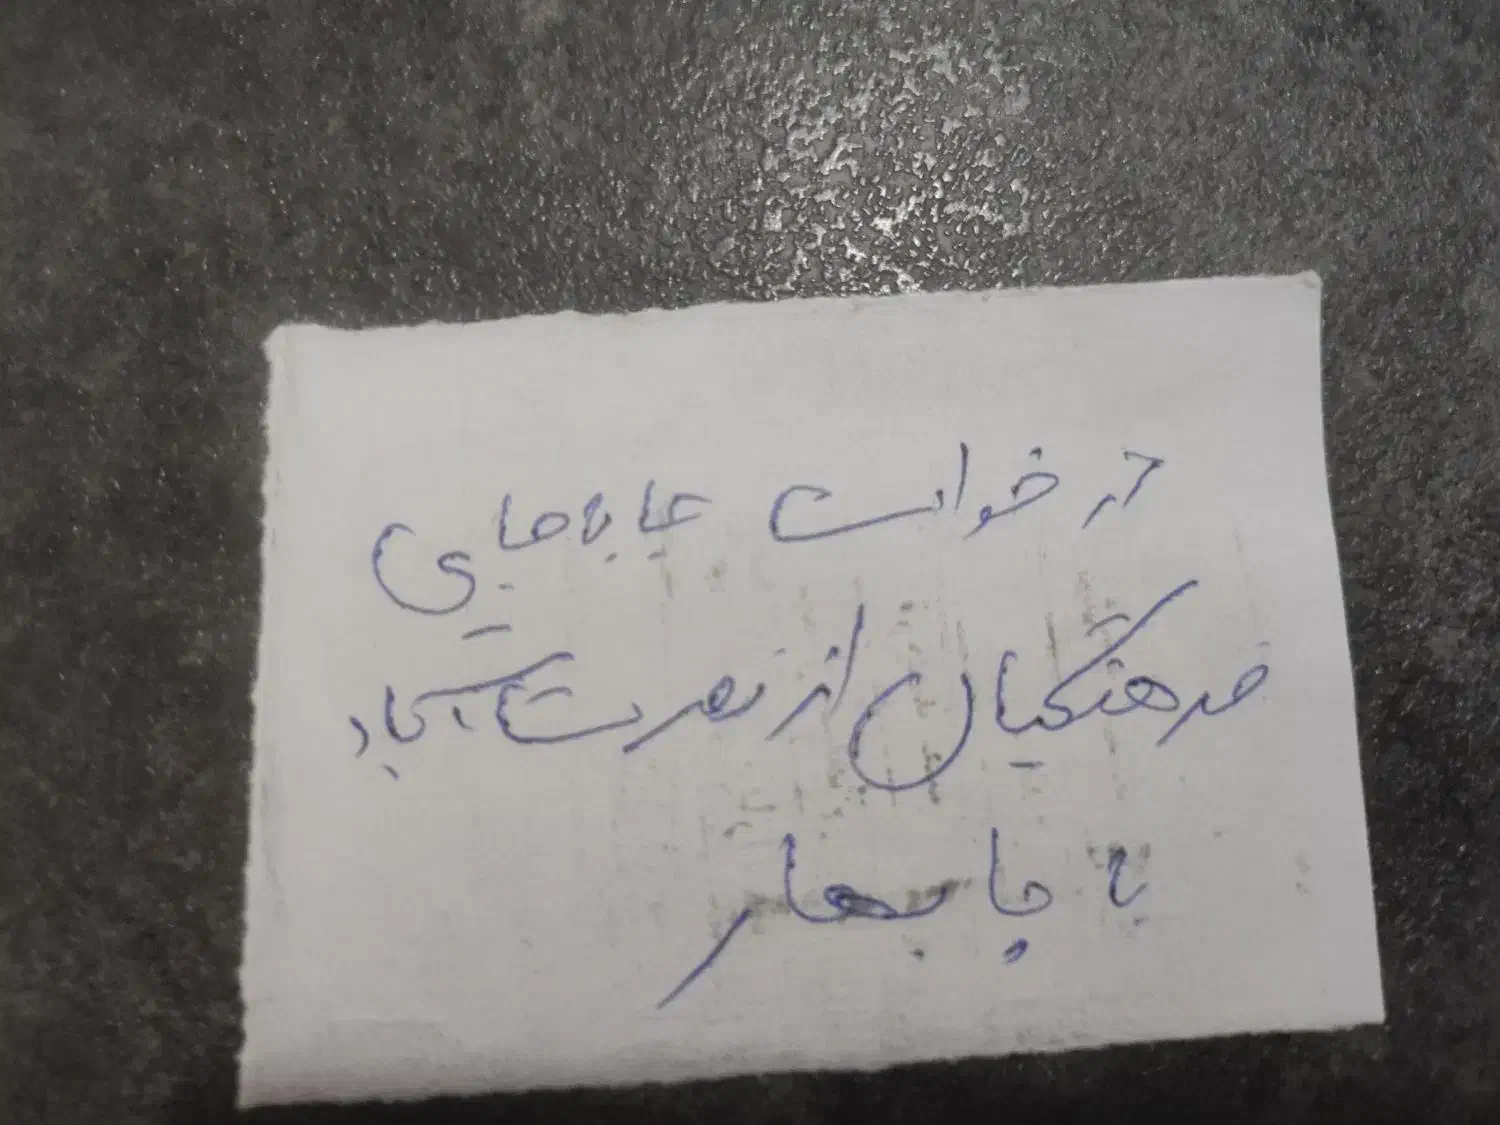 درخواست جابه‌جایی
فرهنگیان از نصرت آباد
با چابهار